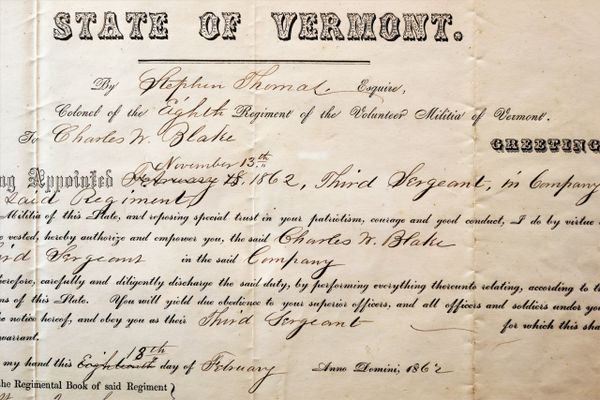 STATE OF VERMONT.
By Stephen Thomas Esquire,
Colonel of the Eighth Regiment of the Volunteer Militia of Vermont.
To Charles W. Blake
GREETING
November 13th
ng Appointed February 18, 1862, Third Sergeant, in Company
Said Regiment
Militia of this State, and reposing special trust in your patriotism, courage and good conduct, I do by virtue
vested, hereby authorize and empower you, the said Charles W. Blake
ird Sergeant in the said Company
herefore, carefully and diligently discharge the said duty, by performing everything thereunto relating, according to
ns of this State. You will yield due obedience to your superior officers, and all officers and soldiers under
notice hereof, and obey you as their Third Sergeant for which this sha
warrant.
18th
my hand this Eighteenth day of February Anno Domini, 1862
the Regimental Book of said Regiment}